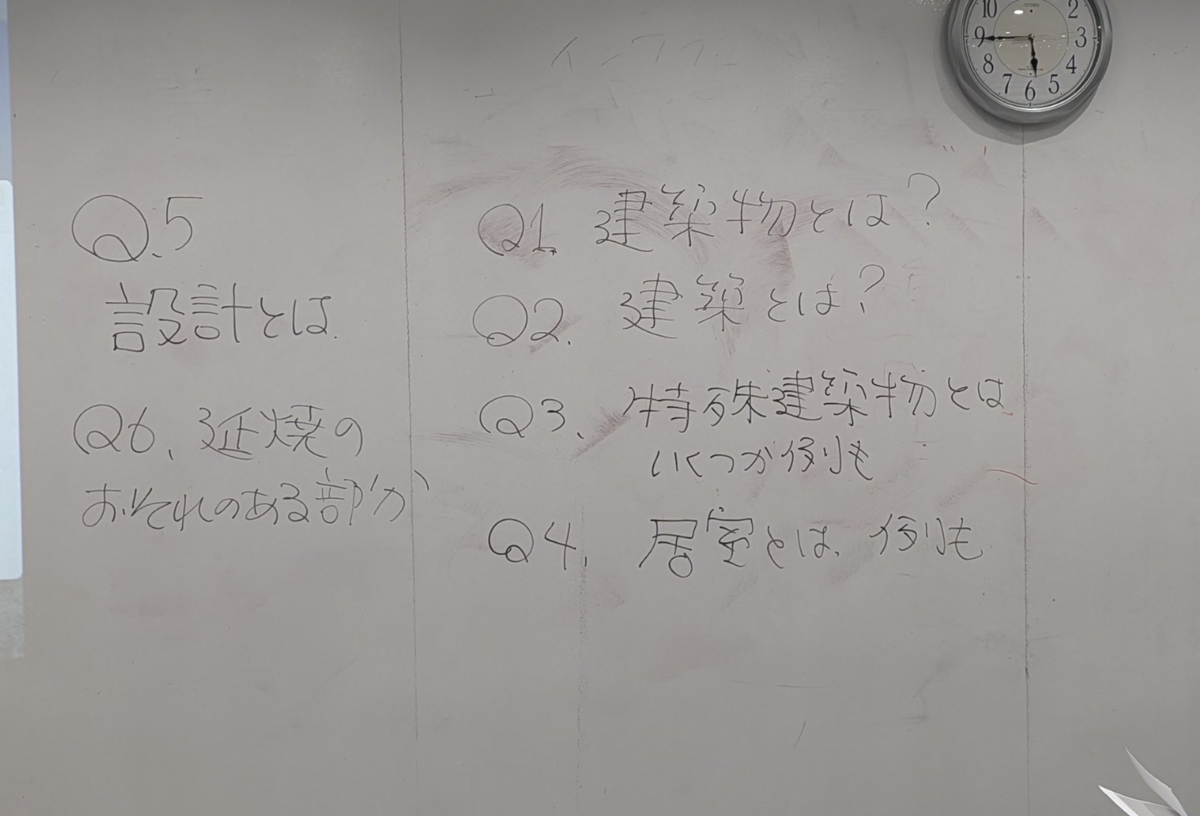 Q1. 建築物とは?
Q2. 建築とは?
Q3、特殊建築物とは
いくつか例も
Q4、居室とは、例も
Q.5
設計とは.
Q6、延焼の
おそれのある部分
10
2
9
3
8
4
7
6
5